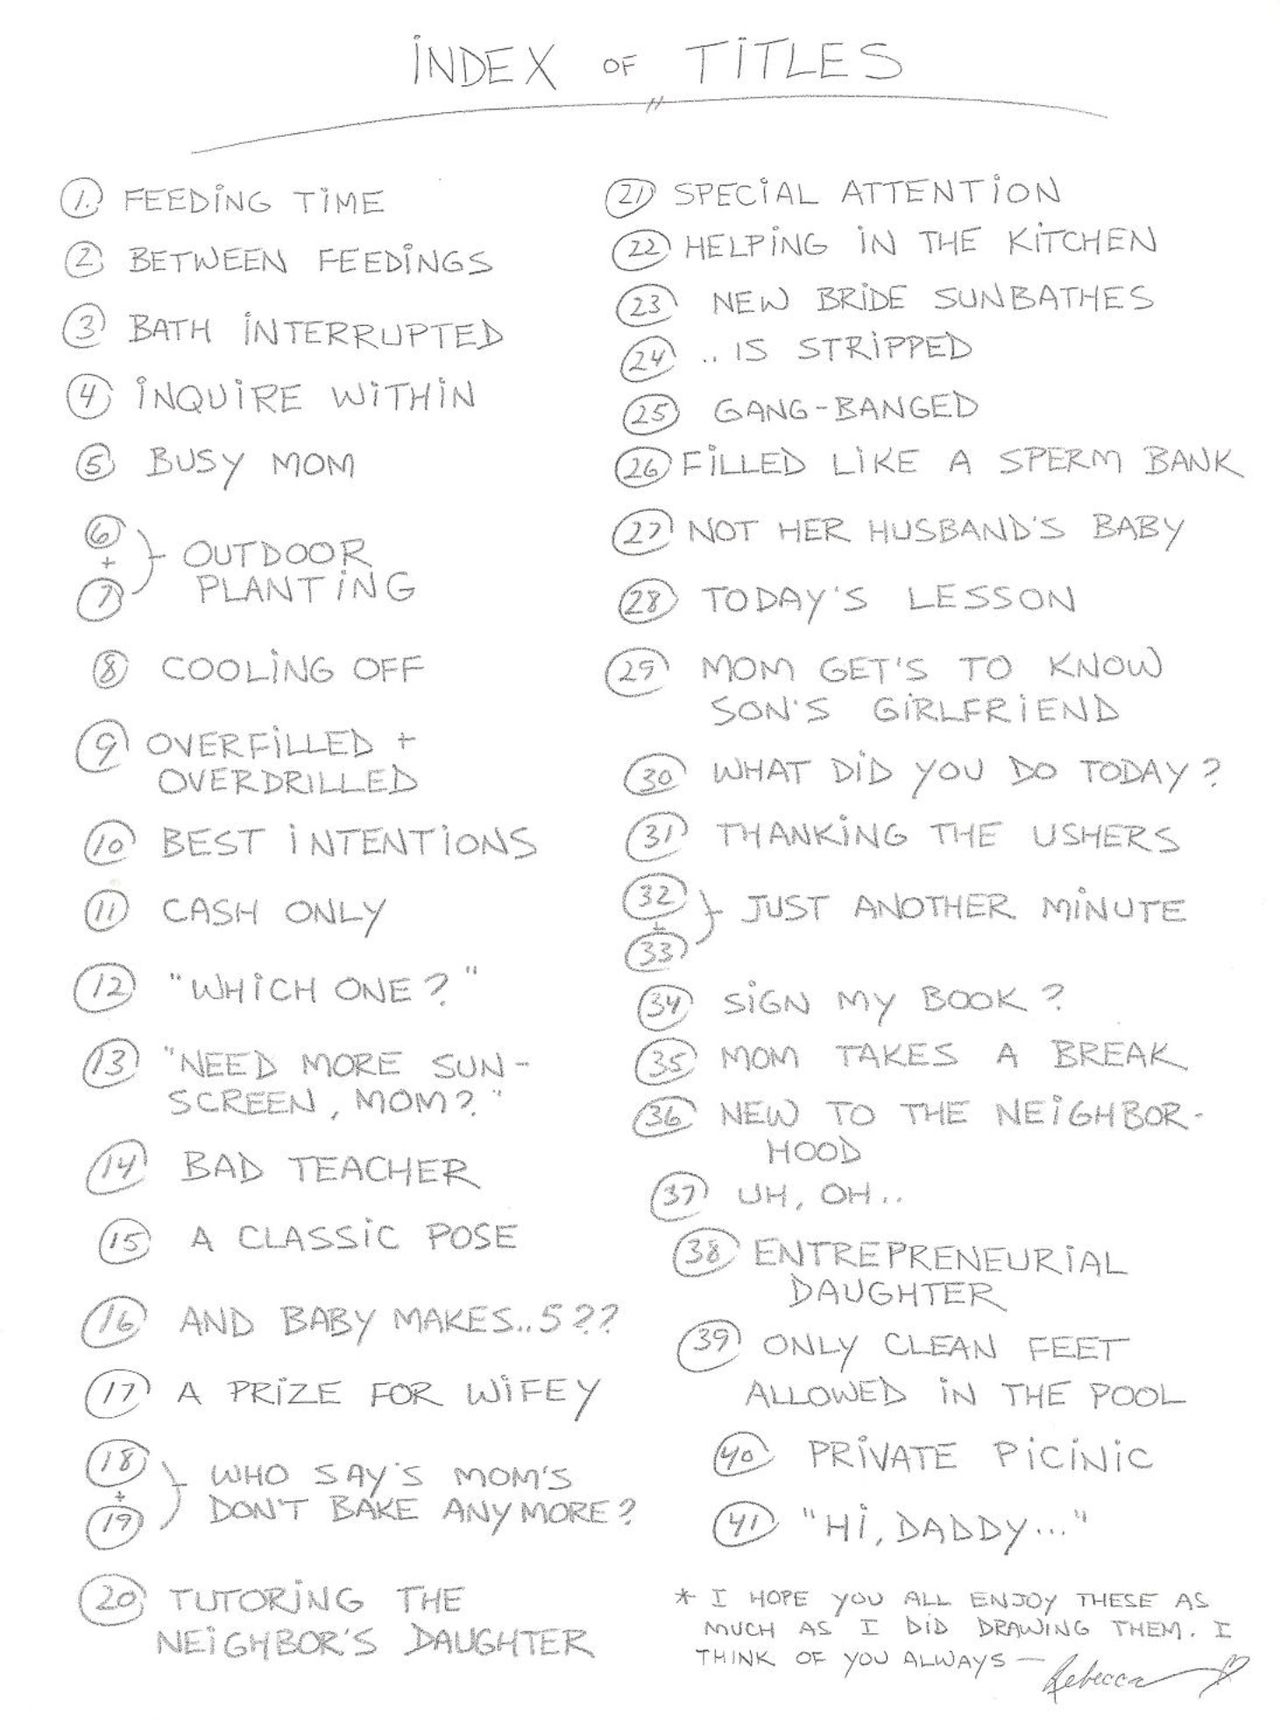 INDEX OF TITLES
1. FEEDING TIME
2 BETWEEN FEEDINGS
3 BATH INTERRUPTED
4 INQUIRE WITHIN
5 BUSY MOM
6
+
7
OUTDOOR
PLANTING
8 COOLING OFF
9 OVERFILLED +
OVERDRILLED
10 BEST INTENTIONS
11 CASH ONLY
12 "WHICH ONE?"
13 "NEED MORE SUN-
SCREEN, MOM?"
14 BAD TEACHER
15 A CLASSIC POSE
16 AND BABY MAKES..5??
17 A PRIZE FOR WIFEY
18
+
19
WHO SAY'S MOM'S
DON'T BAKE ANYMORE?
20 TUTORING THE
NEIGHBOR'S DAUGHTER
21 SPECIAL ATTENTION
22 HELPING IN THE KITCHEN
23 NEW BRIDE SUNBATHES
24 ..IS STRIPPED
25 GANG-BANGED
26 FILLED LIKE A SPERM BANK
27 NOT HER HUSBAND'S BABY
28 TODAY'S LESSON
29 MOM GET'S TO KNOW
SON'S GIRLFRIEND
30 WHAT DID YOU DO TODAY?
31 THANKING THE USHERS
32
+
33
JUST ANOTHER MINUTE
34 SIGN MY BOOK?
35 MOM TAKES A BREAK
36 NEW TO THE NEIGHBOR-
HOOD
37 UH, OH..
38 ENTREPRENEURIAL
DAUGHTER
39 ONLY CLEAN FEET
ALLOWED IN THE POOL
40 PRIVATE PICINIC
41 "HI, DADDY..."
* I HOPE YOU ALL ENJOY THESE AS
MUCH AS I DID DRAWING THEM. I
THINK OF YOU ALWAYS — Rebecca